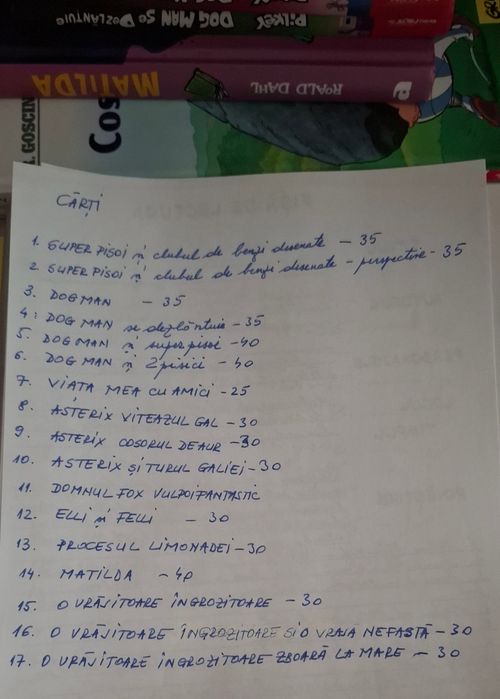 PILKEY DOG MAN SE DEZLĂNȚUIE
ROALD DAHL MATILDA
GOSCIN
Cos
CĂRȚI
1. SUPER PISOI și clubul de benzi desenate - 35
2. SUPER PISOI și clubul de benzi desenate - perspective - 35
3. DOG MAN - 35
4: DOG MAN se dezlănțuie - 35
5. DOG MAN și super pisoi - 40
6. DOG MAN și 2 pisici - 40
7. VIAȚA MEA CU AMICI - 25
8. ASTERIX VITEAZUL GAL - 30
9. ASTERIX COSORUL DE AUR - 30
10. ASTERIX ȘI TURUL GALIEI - 30
11. DOMNUL FOX VULPOI FANTASTIC
12. ELLI și FELLI - 30
13. PROCESUL LIMONADEI - 30
14. MATILDA - 40
15. O VRĂJITOARE ÎNGROZITOARE - 30
16. O VRĂJITOARE ÎNGROZITOARE SI O VRAJĂ NEFASTĂ - 30
17. O VRĂJITOARE ÎNGROZITOARE ZBOARĂ LA MARE - 30